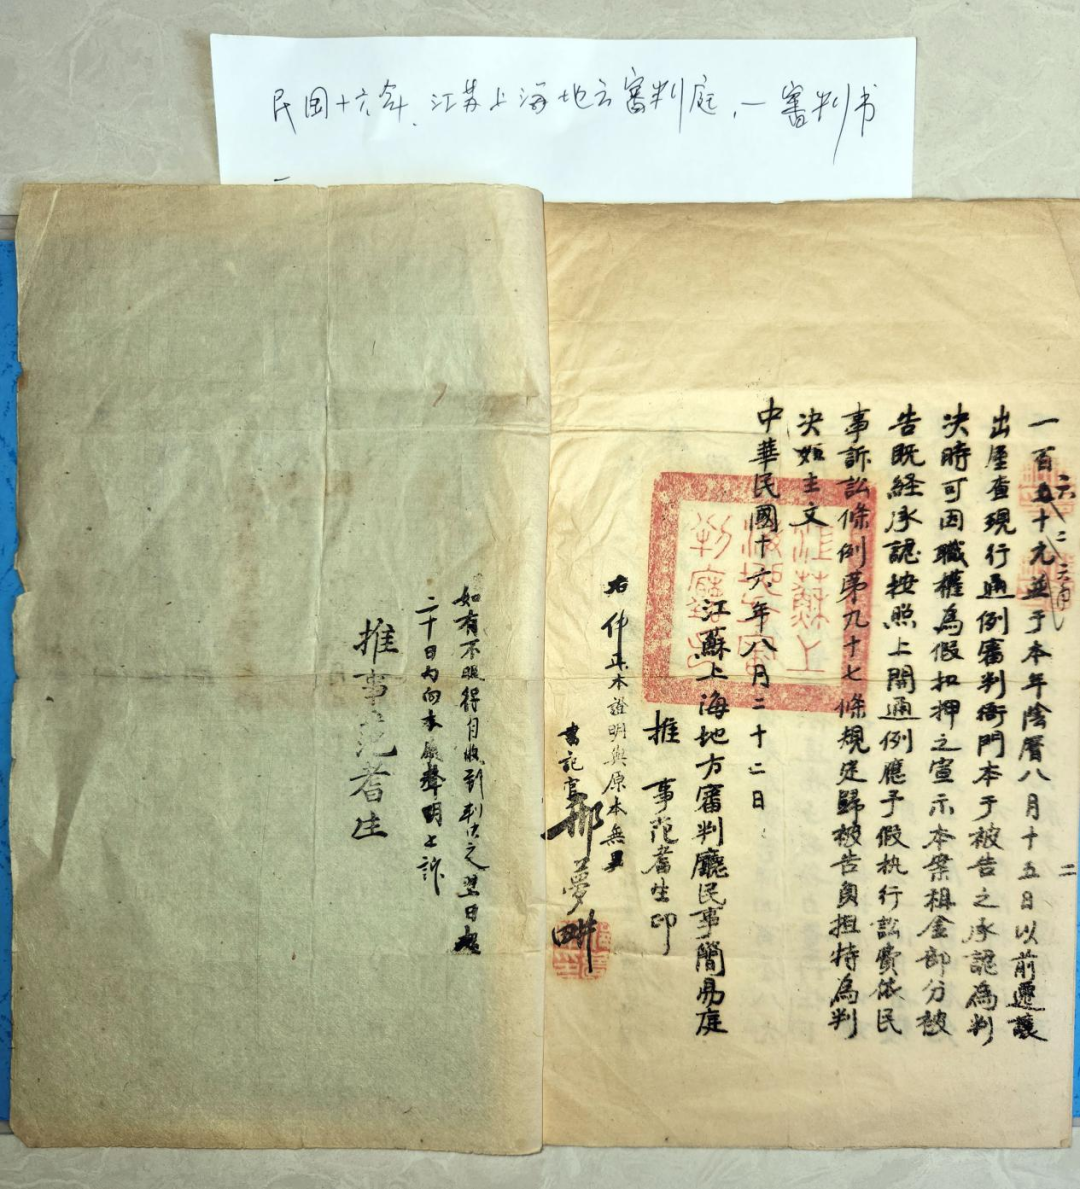 民国十六年.江苏上海地方審判庭,一審判书
一百五十元並于本年陰曆八月十五日以前遷讓
出屋查現行通例審判衙門本于被告之承認為判
決時可因職權為假扣押之宣示本案租金部分被
告既経承認按照上開通例應予假执行訟費依民
事訴訟條例第九十七條規定歸被告負担特為判
決如主文
中華民國十六年八月二十二日
江蘇上海地方審判廳民事簡易庭
推事范耆生印
右仲正本證明與原本無異
書記官
如有不服得自收到判决之翌日起
二十日內向本廳聲明上訴
推事范耆生